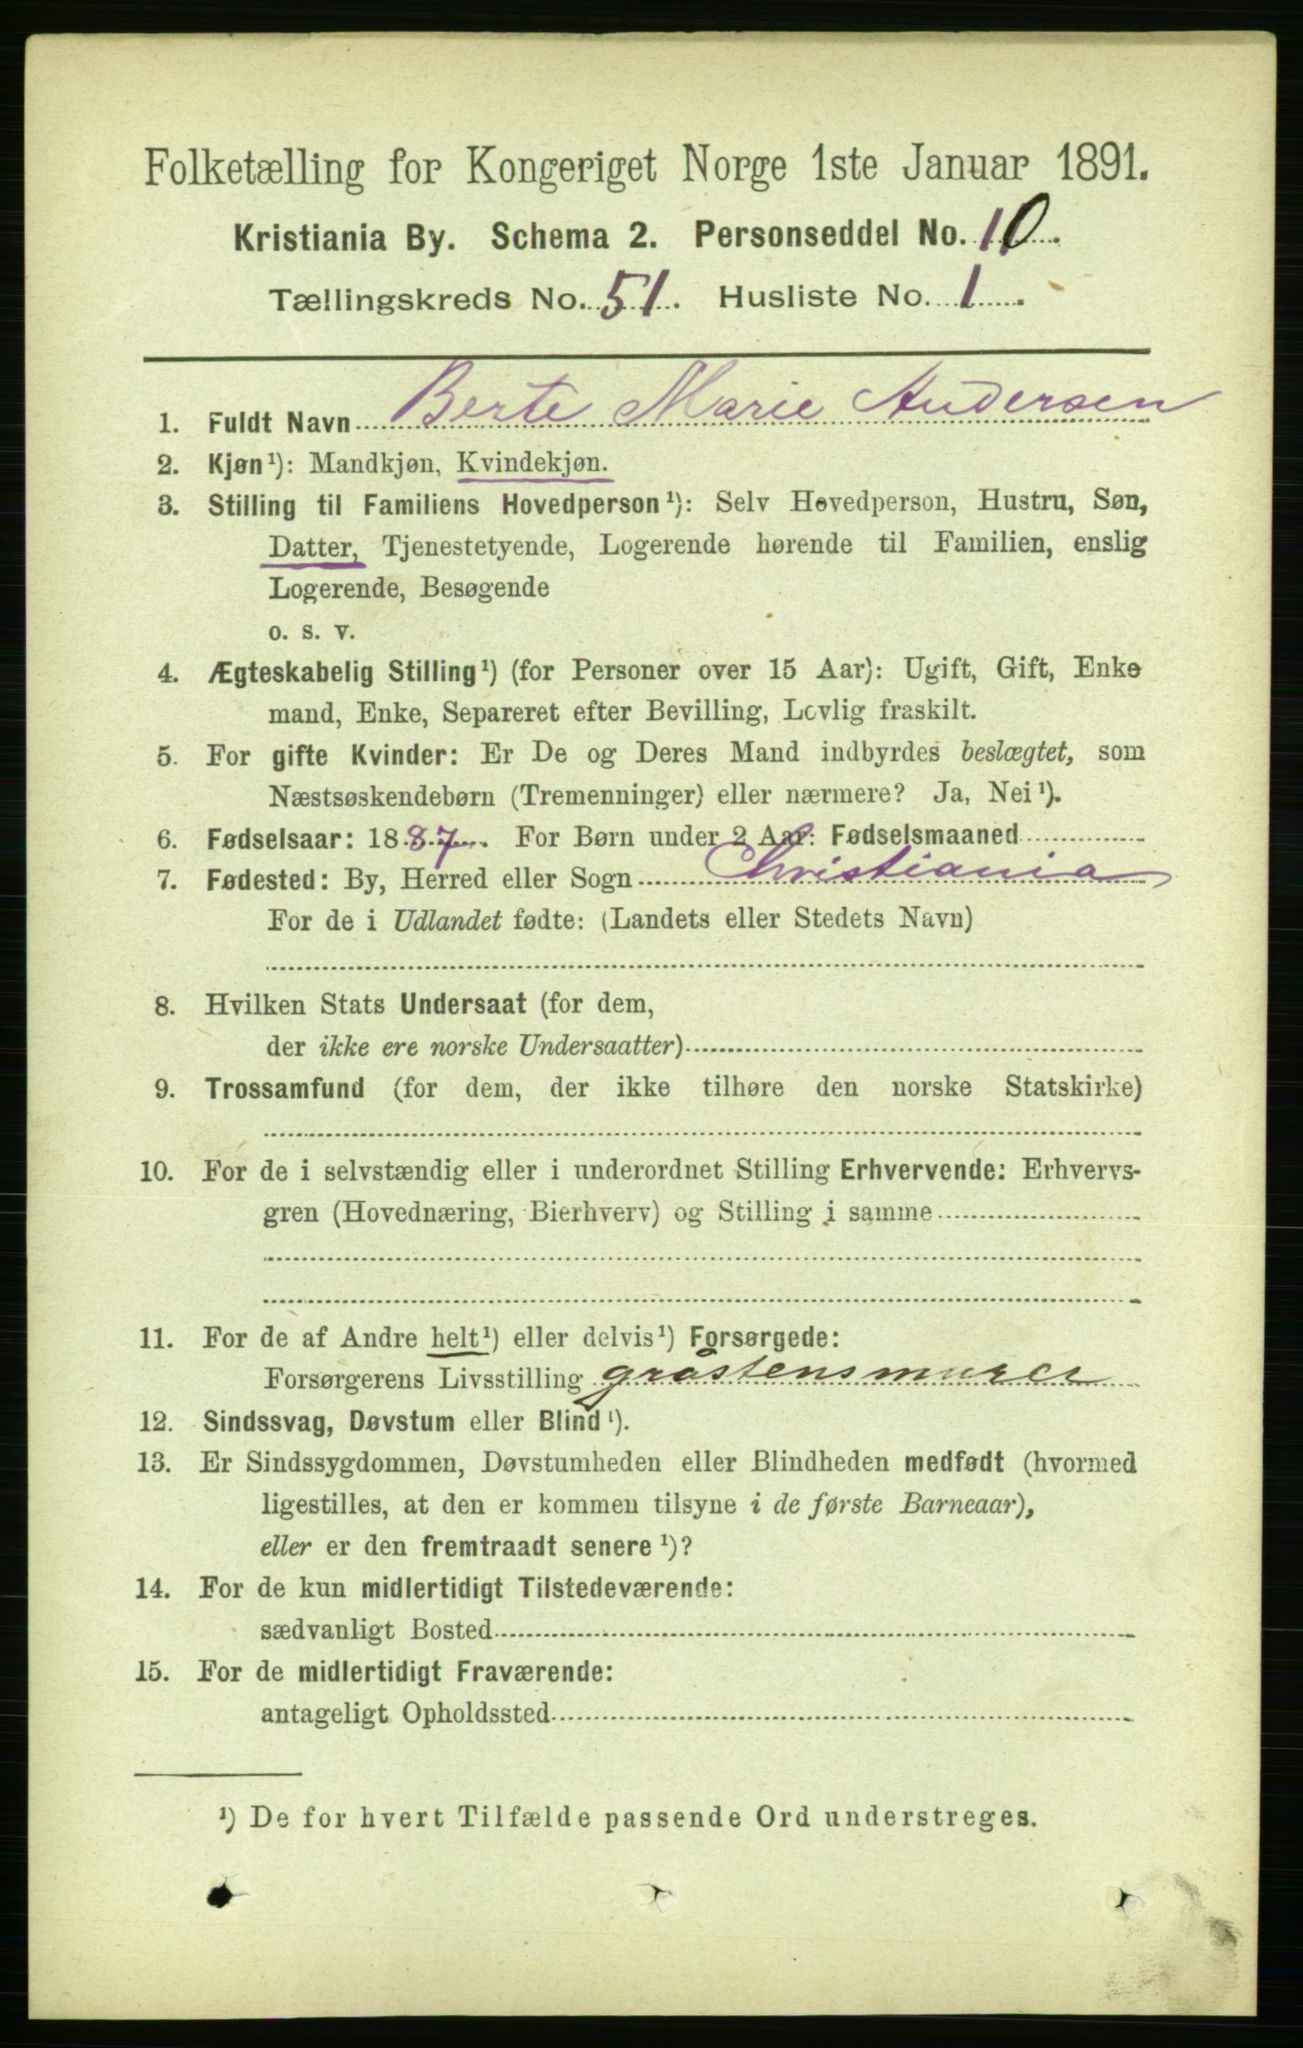 Folketælling for Kongeriget Norge 1ste Januar 1891.
Kristiania By. Schema 2. Personseddel No. 10.
Tællingskreds No. 51. Husliste No. 1.
1. Fuldt Navn Berte Marie Andersen
2. Kjøn¹): Mandkjøn, Kvindekjøn.
3. Stilling til Familiens Hovedperson¹): Selv Hovedperson, Hustru, Søn,
Datter, Tjenestetyende, Logerende hørende til Familien, enslig
Logerende, Besøgende
o. s. v.
4. Ægteskabelig Stilling¹) (for Personer over 15 Aar): Ugift, Gift, Enke
mand, Enke, Separeret efter Bevilling, Lovlig fraskilt.
5. For gifte Kvinder: Er De og Deres Mand indbyrdes beslægtet, som
Næstsøskendebørn (Tremenninger) eller nærmere? Ja, Nei¹).
6. Fødselsaar: 1887. For Børn under 2 Aar: Fødselsmaaned
7. Fødested: By, Herred eller Sogn Christiania
For de i Udlandet fødte: (Landets eller Stedets Navn)
8. Hvilken Stats Undersaat (for dem,
der ikke ere norske Undersaatter)
9. Trossamfund (for dem, der ikke tilhøre den norske Statskirke)
10. For de i selvstændig eller i underordnet Stilling Erhvervende: Erhvervs-
gren (Hovednæring, Bierhverv) og Stilling i samme
11. For de af Andre helt¹) eller delvis¹) Forsørgede:
Forsørgerens Livsstilling gråstensmurer
12. Sindssvag, Døvstum eller Blind¹).
13. Er Sindssygdommen, Døvstumheden eller Blindheden medfødt (hvormed
ligestilles, at den er kommen tilsyne i de første Barneaar),
eller er den fremtraadt senere¹)?
14. For de kun midlertidigt Tilstedeværende:
sædvanligt Bosted
15. For de midlertidigt Fraværende:
antageligt Opholdssted
¹) De for hvert Tilfælde passende Ord understreges.